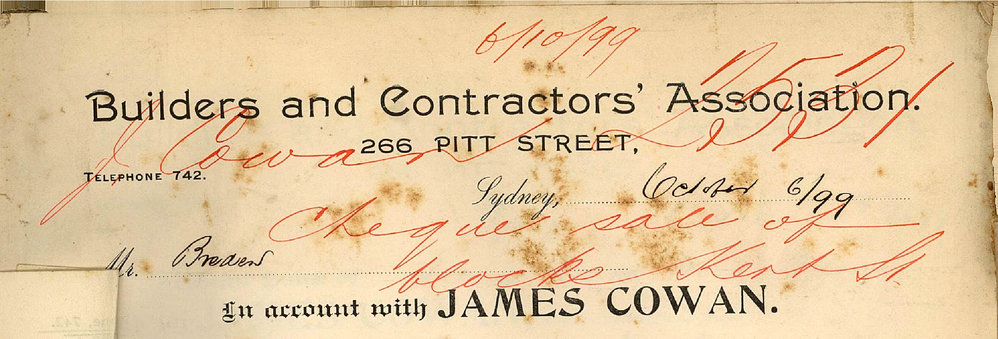 6/10/99
Builders and Contractors' Association.
266 PITT STREET,
J. Cowan
TELEPHONE 742.
Sydney, October 6/99
Cheque sale of
Mr.
blocks Kent St.
In account with JAMES COWAN.